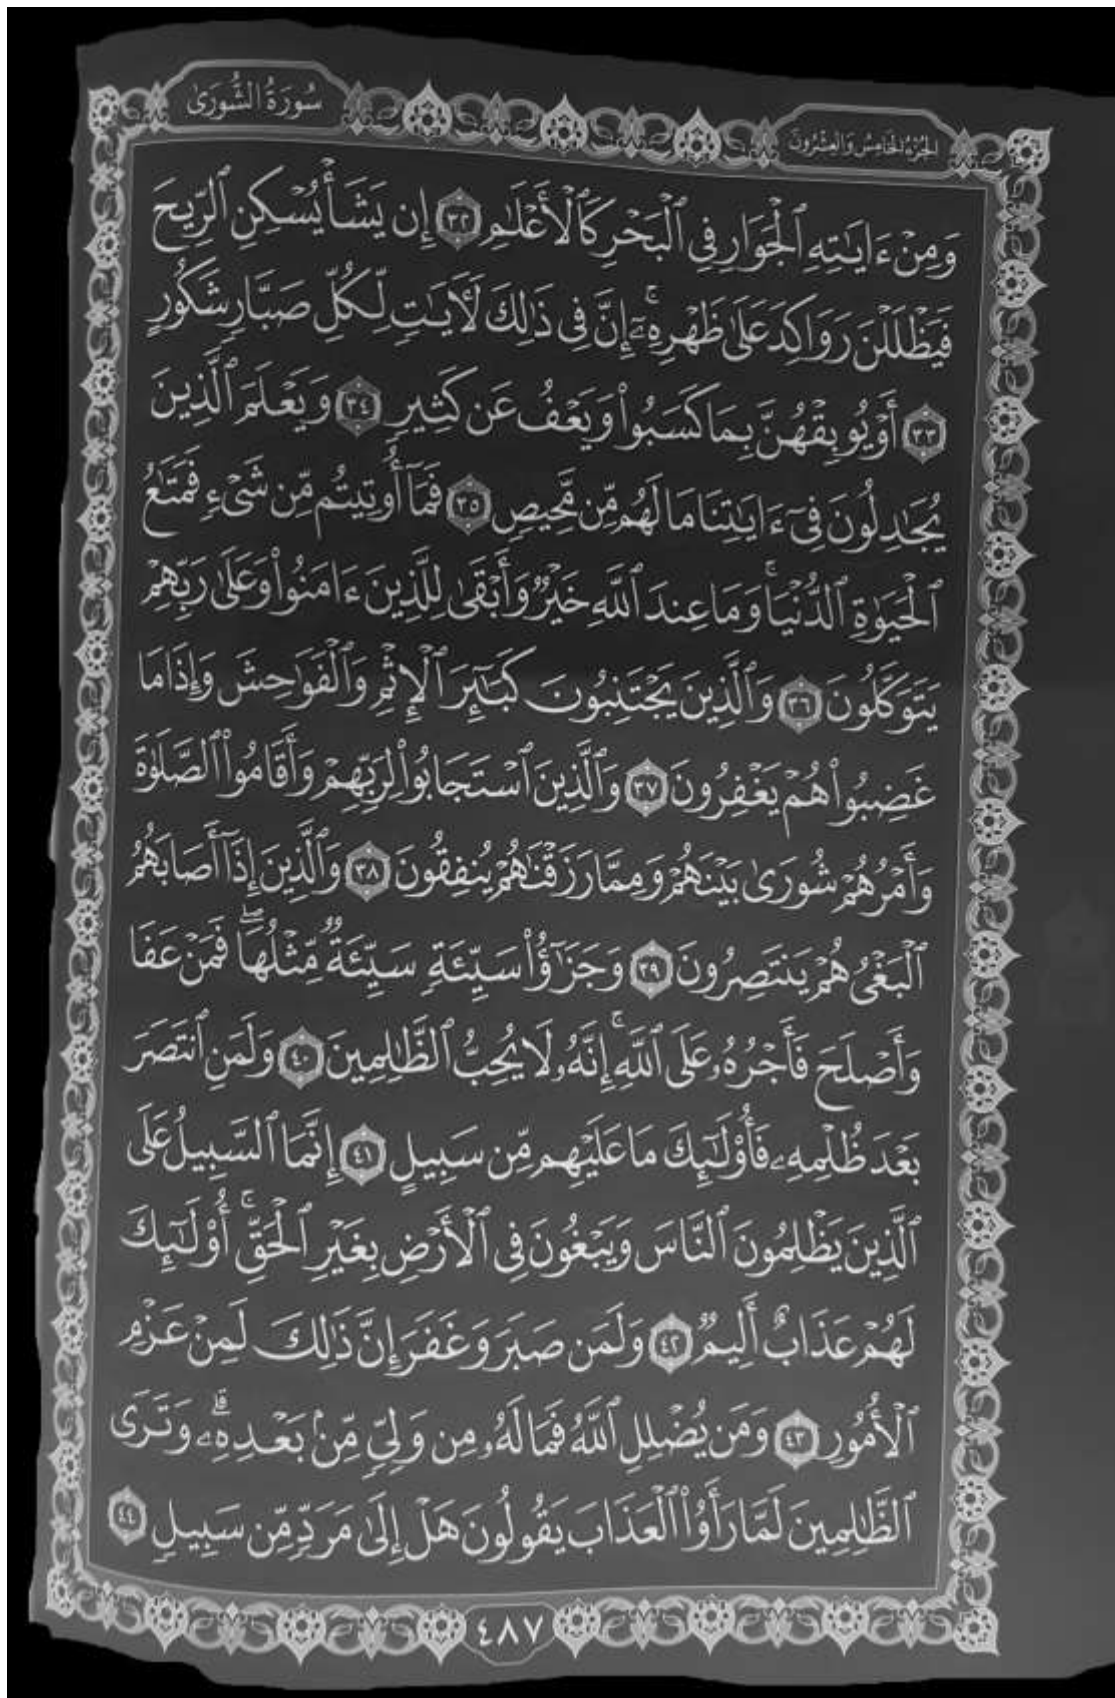 سُورَةُ الشُّورَىٰ
الجُزْءُ الخَامِسُ وَالعِشْرُونَ
وَمِنْ ءَايَٰتِهِ ٱلْجَوَارِ فِى ٱلْبَحْرِ كَٱلْأَعْلَٰمِ ٣٢ إِن يَشَأْ يُسْكِنِ ٱلرِّيحَ
فَيَظْلَلْنَ رَوَاكِدَ عَلَىٰ ظَهْرِهِۦٓ ۚ إِنَّ فِى ذَٰلِكَ لَءَايَٰتٍ لِّكُلِّ صَبَّارٍ شَكُورٍ
٣٣ أَوْ يُوبِقْهُنَّ بِمَا كَسَبُوا۟ وَيَعْفُ عَن كَثِيرٍ ٣٤ وَيَعْلَمَ ٱلَّذِينَ
يُجَٰدِلُونَ فِىٓ ءَايَٰتِنَا مَا لَهُم مِّن مَّحِيصٍ ٣٥ فَمَآ أُوتِيتُم مِّن شَىْءٍ فَمَتَٰعُ
ٱلْحَيَوٰةِ ٱلدُّنْيَا ۚ وَمَا عِندَ ٱللَّهِ خَيْرٌ وَأَبْقَىٰ لِلَّذِينَ ءَامَنُوا۟ وَعَلَىٰ رَبِّهِمْ
يَتَوَكَّلُونَ ٣٦ وَٱلَّذِينَ يَجْتَنِبُونَ كَبَٰٓئِرَ ٱلْإِثْمِ وَٱلْفَوَٰحِشَ وَإِذَا مَا
غَضِبُوا۟ هُمْ يَغْفِرُونَ ٣٧ وَٱلَّذِينَ ٱسْتَجَابُوا۟ لِرَبِّهِمْ وَأَقَامُوا۟ ٱلصَّلَوٰةَ
وَأَمْرُهُمْ شُورَىٰ بَيْنَهُمْ وَمِمَّا رَزَقْنَٰهُمْ يُنفِقُونَ ٣٨ وَٱلَّذِينَ إِذَآ أَصَابَهُمُ
ٱلْبَغْىُ هُمْ يَنتَصِرُونَ ٣٩ وَجَزَٰٓؤُا۟ سَيِّئَةٍ سَيِّئَةٌ مِّثْلُهَا ۖ فَمَنْ عَفَا
وَأَصْلَحَ فَأَجْرُهُۥ عَلَى ٱللَّهِ ۚ إِنَّهُۥ لَا يُحِبُّ ٱلظَّٰلِمِينَ ٤٠ وَلَمَنِ ٱنتَصَرَ
بَعْدَ ظُلْمِهِۦ فَأُو۟لَٰٓئِكَ مَا عَلَيْهِم مِّن سَبِيلٍ ٤١ إِنَّمَا ٱلسَّبِيلُ عَلَى
ٱلَّذِينَ يَظْلِمُونَ ٱلنَّاسَ وَيَبْغُونَ فِى ٱلْأَرْضِ بِغَيْرِ ٱلْحَقِّ ۚ أُو۟لَٰٓئِكَ
لَهُمْ عَذَابٌ أَلِيمٌ ٤٢ وَلَمَن صَبَرَ وَغَفَرَ إِنَّ ذَٰلِكَ لَمِنْ عَزْمِ
ٱلْأُمُورِ ٤٣ وَمَن يُضْلِلِ ٱللَّهُ فَمَا لَهُۥ مِن وَلِىٍّ مِّنۢ بَعْدِهِۦ ۗ وَتَرَى
ٱلظَّٰلِمِينَ لَمَّا رَأَوُا۟ ٱلْعَذَابَ يَقُولُونَ هَلْ إِلَىٰ مَرَدٍّ مِّن سَبِيلٍ ٤٤
٤٨٧